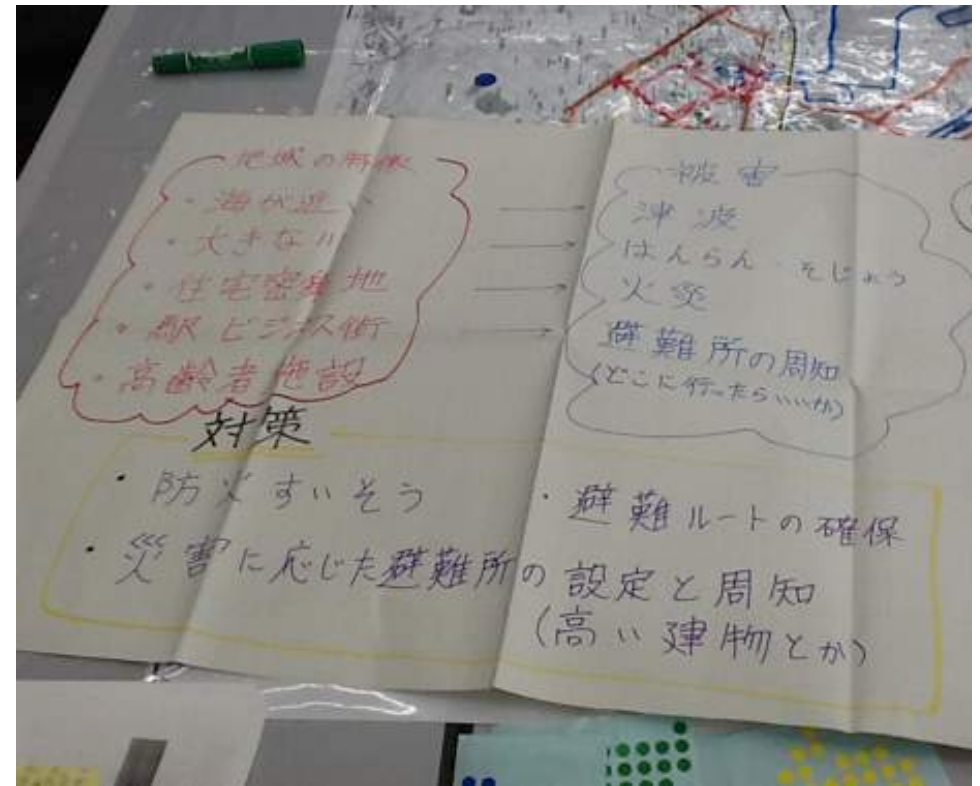 地域の特徴
・海が近い
・大きな川
・住宅密集地
・駅 ビジネス街
・高齢者施設
被害
津波
はんらん・そじょう
火災
避難所の周知
(どこに行ったらいいか)
対策
・防火すいそう
・避難ルートの確保
・災害に応じた避難所の設定と周知
(高い建物とか)